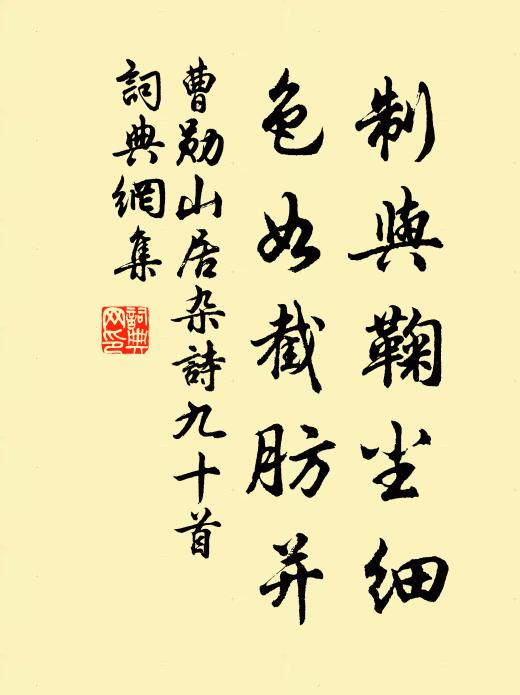 制與鞠尘细
色如截肪并
曹勋山居杂詩九十首
詞典網集
詞典
网印